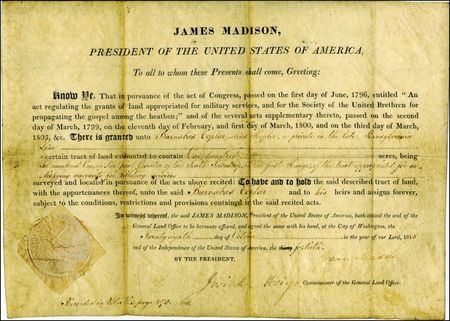 JAMES MADISON,
PRESIDENT OF THE UNITED STATES OF AMERICA,
To all to whom these Presents shall come, Greeting:
Know Ye, That in pursuance of the act of Congress, passed on the first day of June, 1796, entitled "An
act regulating the grants of land appropriated for military services, and for the Society of the United Brethren for
propagating the gospel among the heathen;" and of the several acts supplementary thereto, passed on the second
day of March, 1799, on the eleventh day of February, and first day of March, 1800, and on the third day of March,
1803, &c. There is granted unto a private in the late Pennsylvania
Line
a certain tract of land estimated to contain One hundred acres, being
surveyed and located in pursuance of the acts above recited: To have and to hold the said described tract of land,
with the appurtenances thereof, unto the said and to his heirs and assigns forever,
subject to the conditions, restrictions and provisions contained in the said recited acts.
In witness whereof, the said JAMES MADISON, President of the United States of America, hath caused the seal of the
General Land Office to be hereunto affixed, and signed the same with his hand, at the City of Washington, the
day of in the year of our Lord, 181
and of the Independence of the United States of America, the
BY THE PRESIDENT, James Madison
Josiah Meigs Commissioner of the General Land Office.
Recorded in page